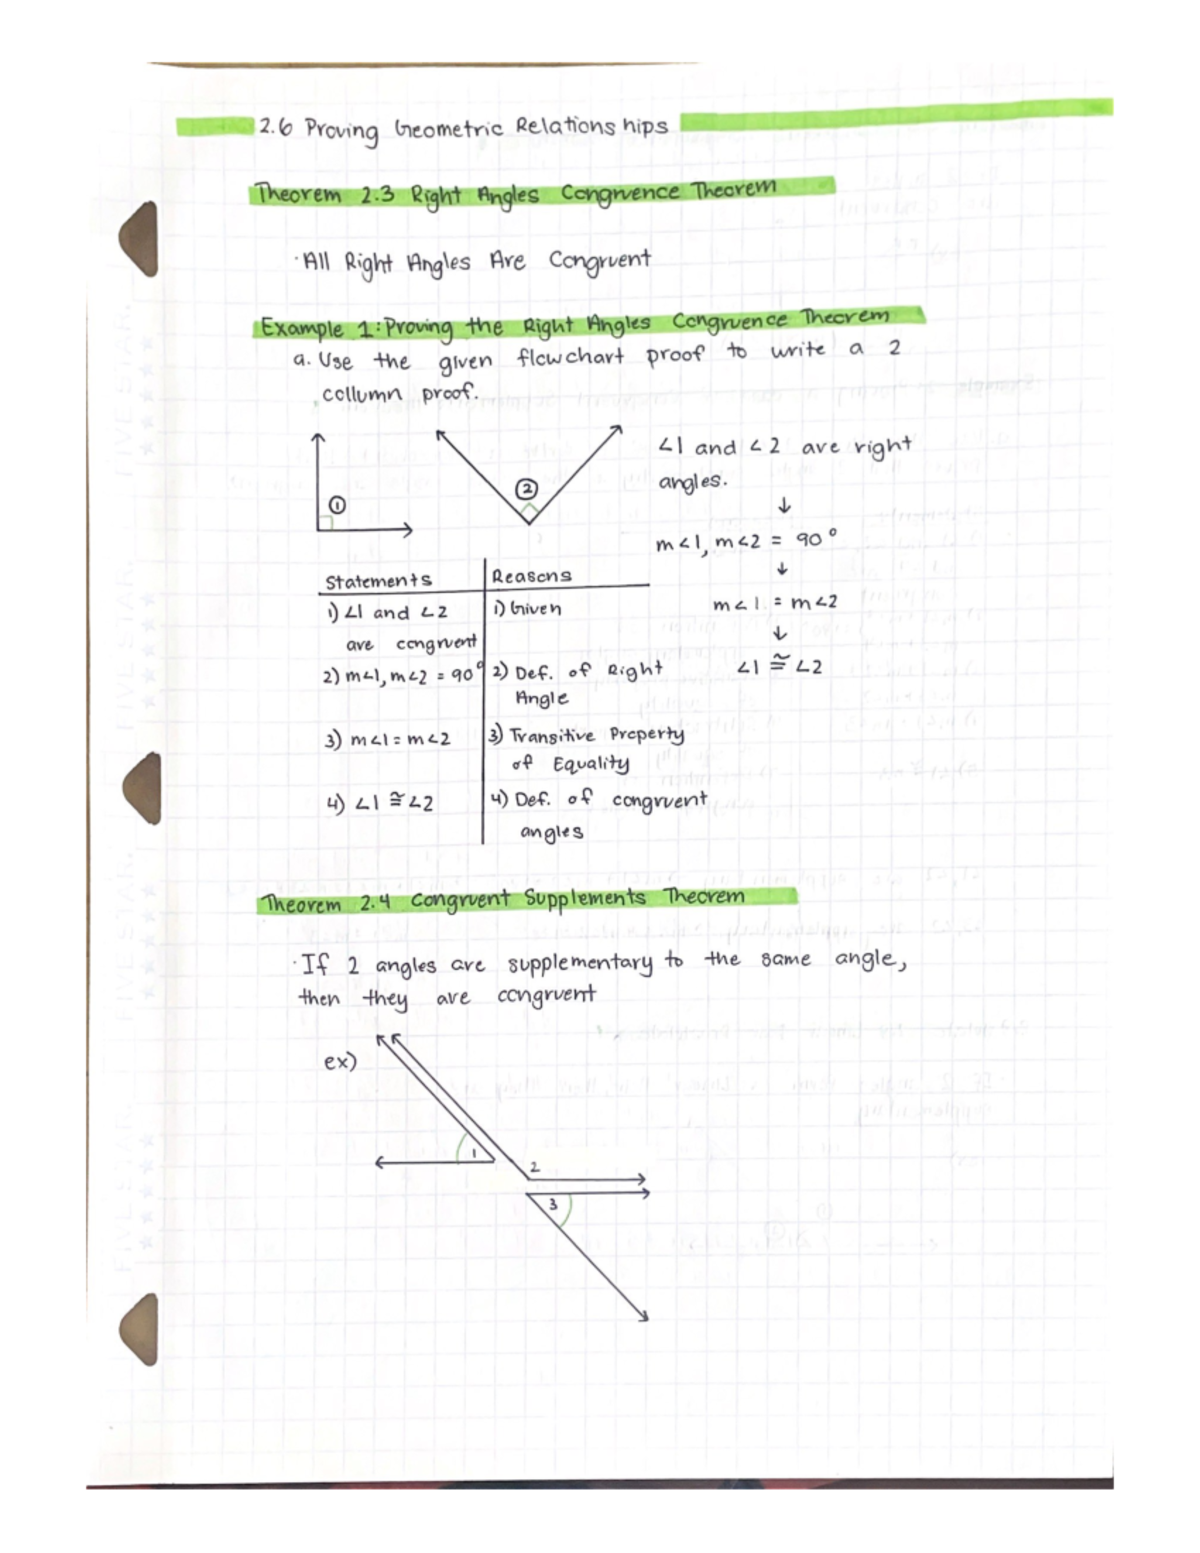 2.6 Proving Geometric Relationships
Theorem 2.3 Right Angles Congruence Theorem
· All Right Angles Are Congruent
Example 1: Proving the Right Angles Congruence Theorem
a. Use the given flowchart proof to write a 2
collumn proof.
∠1 and ∠2 are right
angles.
① ②
↓
m∠1, m∠2 = 90°
↓
m∠1 = m∠2
↓
∠1 ≅ ∠2
Statements Reasons
1) ∠1 and ∠2 1) Given
are congruent
2) m∠1, m∠2 = 90° 2) Def. of Right
Angle
3) m∠1 = m∠2 3) Transitive Property
of Equality
4) ∠1 ≅ ∠2 4) Def. of congruent
angles
Theorem 2.4 Congruent Supplements Theorem
· If 2 angles are supplementary to the same angle,
then they are congruent
ex)
1
2
3